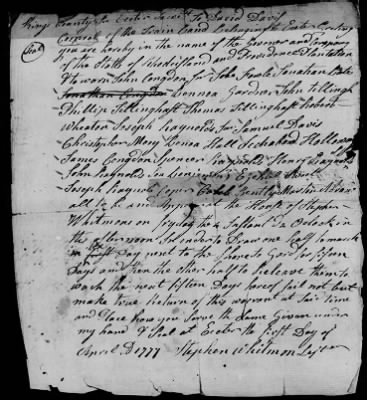 Kings County Ss Exeter To David Davis
Corporal of the Train Band Belonging to Exeter Greeting
Seal
you are hereby in the name of the Govenor and Company
of the State of Rhodeisland and Providence Plantation
to warn John Congdon for John Jonathan Bates
Jonathan Congdon Benona Gardner John Tillingh
Phillip Tillinghast Thomas Tillinghast Robert
Wheator Joseph Raynolds for Samuel Davis
Christopher Mory Benoa Hall Hollaway
James Congdon Spencer Raynolds Henry Raynol
John Raynolds Son Benjamin
Joseph Raynols Caleb
all to be and Appear at the House of Stephen
Whitmans on fryday the 4 Instant 2 a Oclock in
the afternoon In order to Draw one half to march
in first Day next to the Shore to Gard for fifteen
Days and then the other half to releave them to
wach the next fifteen Days hereof fail not but
make true Return of this warrant at said time
and Place how you Serve the Same Given under
my hand & Seal at Exeter the first Day of
April AD 1777 Stephen Whitman